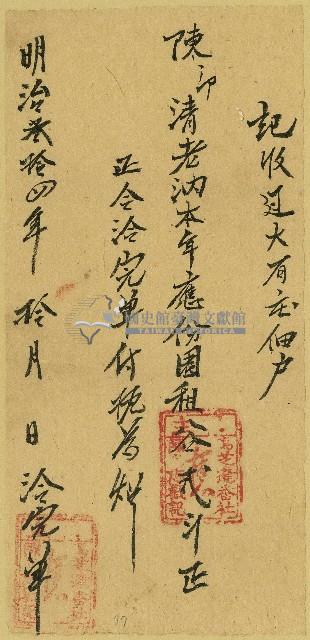 記收过大有庄佃户
陳印清老汭本年應份園租谷弍斗正
正合洽完單付执爲炤
明治叁拾四年 拾月 日 洽完單
國史館臺灣文獻館
TAIWAN HISTORICA
37